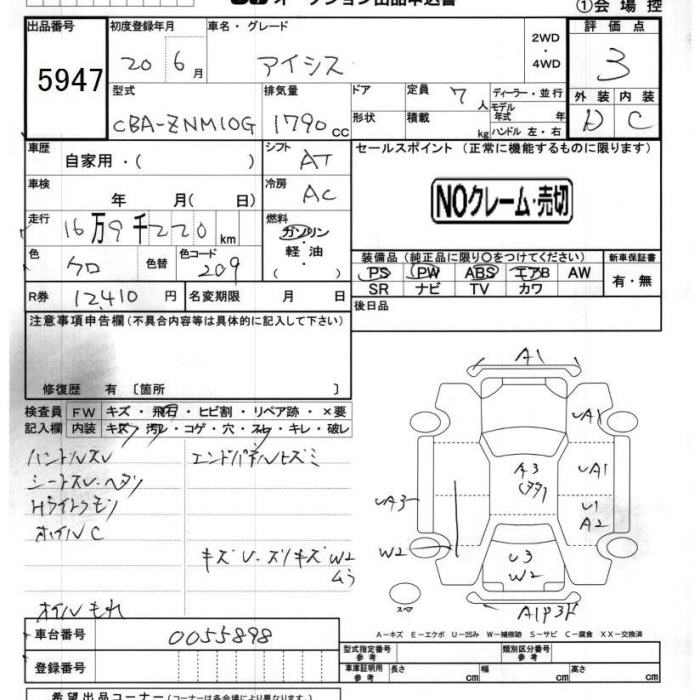 オークション出品申込書
①会場控
出品番号 初度登録年月 車名・グレード 2WD・4WD 評価点
5947 20年 6月 アイシス 3
型式 排気量 ドア 定員 7人 ディーラー・並行 外装 内装
CBA-ZNM10G 1790cc 形状 積載 kg モデル年式 年 ハンドル 左・右 D C
車歴 自家用・( ) シフト AT セールスポイント (正常に機能するものに限ります)
車検 年 月( 日) 冷房 AC
NOクレーム・売切
走行 16万9千220km 燃料 ガソリン・軽油・( )
色 クロ 色替 色コード 209
装備品 (純正品に限り○をつけてください) 新車保証書
PS PW ABS エアB AW 有・無
SR ナビ TV カワ
R券 12,410円 名変期限 月 日 後日品
注意事項申告欄 (不具合内容等は具体的に記入して下さい)
修復歴 有 〔箇所 〕
検査員 FW キズ・飛石・ヒビ割・リペア跡・×要
記入欄 内装 キズ・汚レ・コゲ・穴・スレ・キレ・破レ
ハンドルスレ エンドパネルヒズミ
シートスレ・ヘタリ
Hライトクモリ
ホイルC
キズU・スリキズW2
ムラ
オイルもれ
A1
UA1
A3
UA1
UA3
U1
A2
W2
U3
W2
スペア
A1P3ﾄ
A-キズ E-エクボ U-凹み W-補修跡 S-サビ C-腐食 XX-交換済
車台番号 0055898
型式指定番号 参考 類別区分番号 参考
登録番号 車庫証明用 参考 長さ cm 幅 cm 高さ cm
希望出品コーナー (コーナーは各会場により